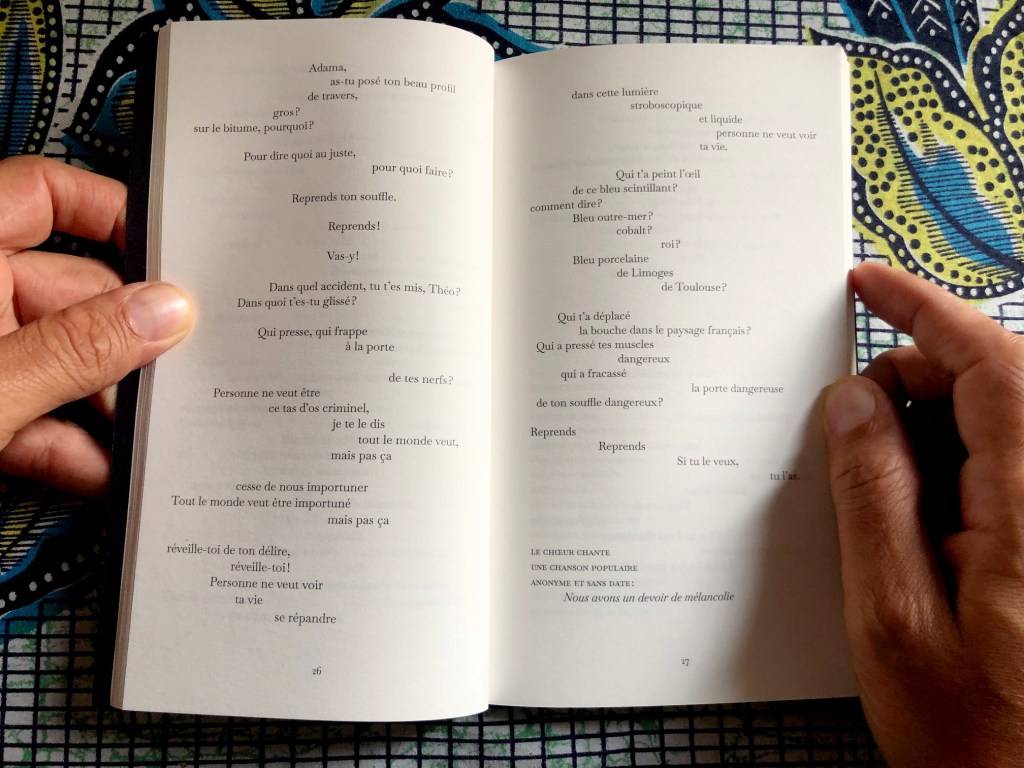 Adama,
as-tu posé ton beau profil
de travers,
gros ?
sur le bitume, pourquoi ?
Pour dire quoi au juste,
pour quoi faire ?
Reprends ton souffle.
Reprends !
Vas-y !
Dans quel accident, tu t'es mis, Théo ?
Dans quoi t'es-tu glissé ?
Qui presse, qui frappe
à la porte
de tes nerfs ?
Personne ne veut être
ce tas d'os criminel,
je te le dis
tout le monde veut,
mais pas ça
cesse de nous importuner
Tout le monde veut être importuné
mais pas ça
réveille-toi de ton délire,
réveille-toi !
Personne ne veut voir
ta vie
se répandre
26
dans cette lumière
stroboscopique
et liquide
personne ne veut voir
ta vie.
Qui t'a peint l'œil
de ce bleu scintillant ?
comment dire ?
Bleu outre-mer ?
cobalt ?
roi ?
Bleu porcelaine
de Limoges
de Toulouse ?
Qui t'a déplacé
la bouche dans le paysage français ?
Qui a pressé tes muscles
dangereux
qui a fracassé
la porte dangereuse
de ton souffle dangereux ?
Reprends
Reprends
Si tu le veux,
tu l'as.
LE CHŒUR CHANTE
UNE CHANSON POPULAIRE
ANONYME ET SANS DATE :
Nous avons un devoir de mélancolie
27